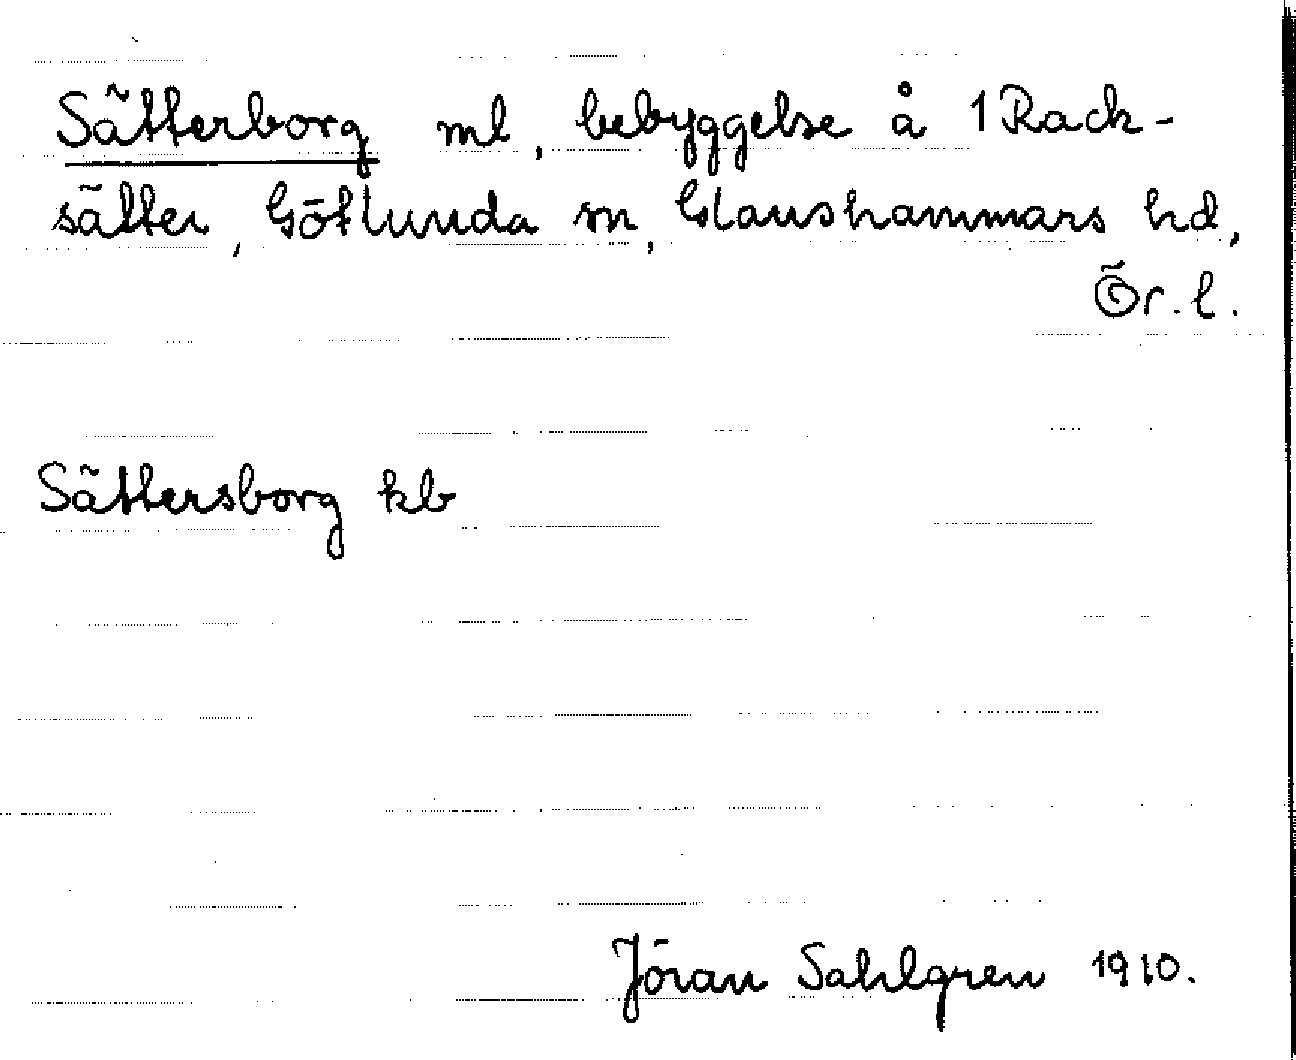 Sätterborg ml, bebyggelse å 1 Rack-
sätter, Götlunda sn, Glanshammars hd,
Ör. l.
Sättersborg kb
Jöran Sahlgren 1910.